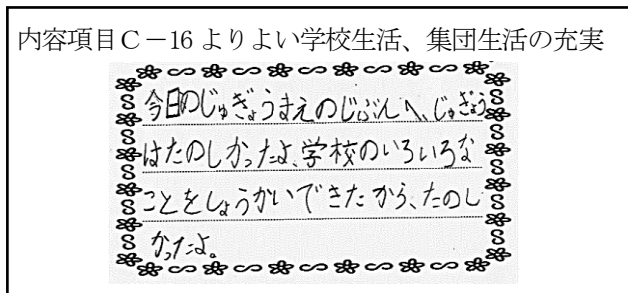 内容項目C－16 よりよい学校生活、集団生活の充実
今日のじゅぎょうまえのじぶんへ、じゅぎょう
はたのしかったよ、学校のいろいろな
ことをしょうかいできたから、たのし
かったよ。